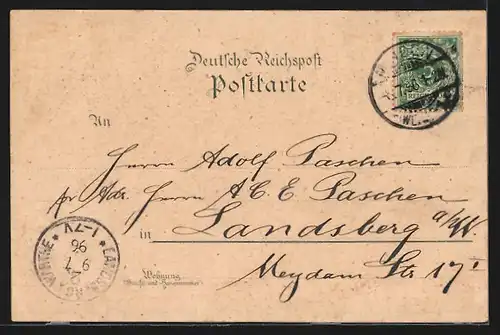 Deutsche Reichspost
Postkarte
An
Herrn Adolf Paschen
pr Adr. Herrn A C. E Paschen
in Landsberg a/W
Wohnung
Meydam Str 17